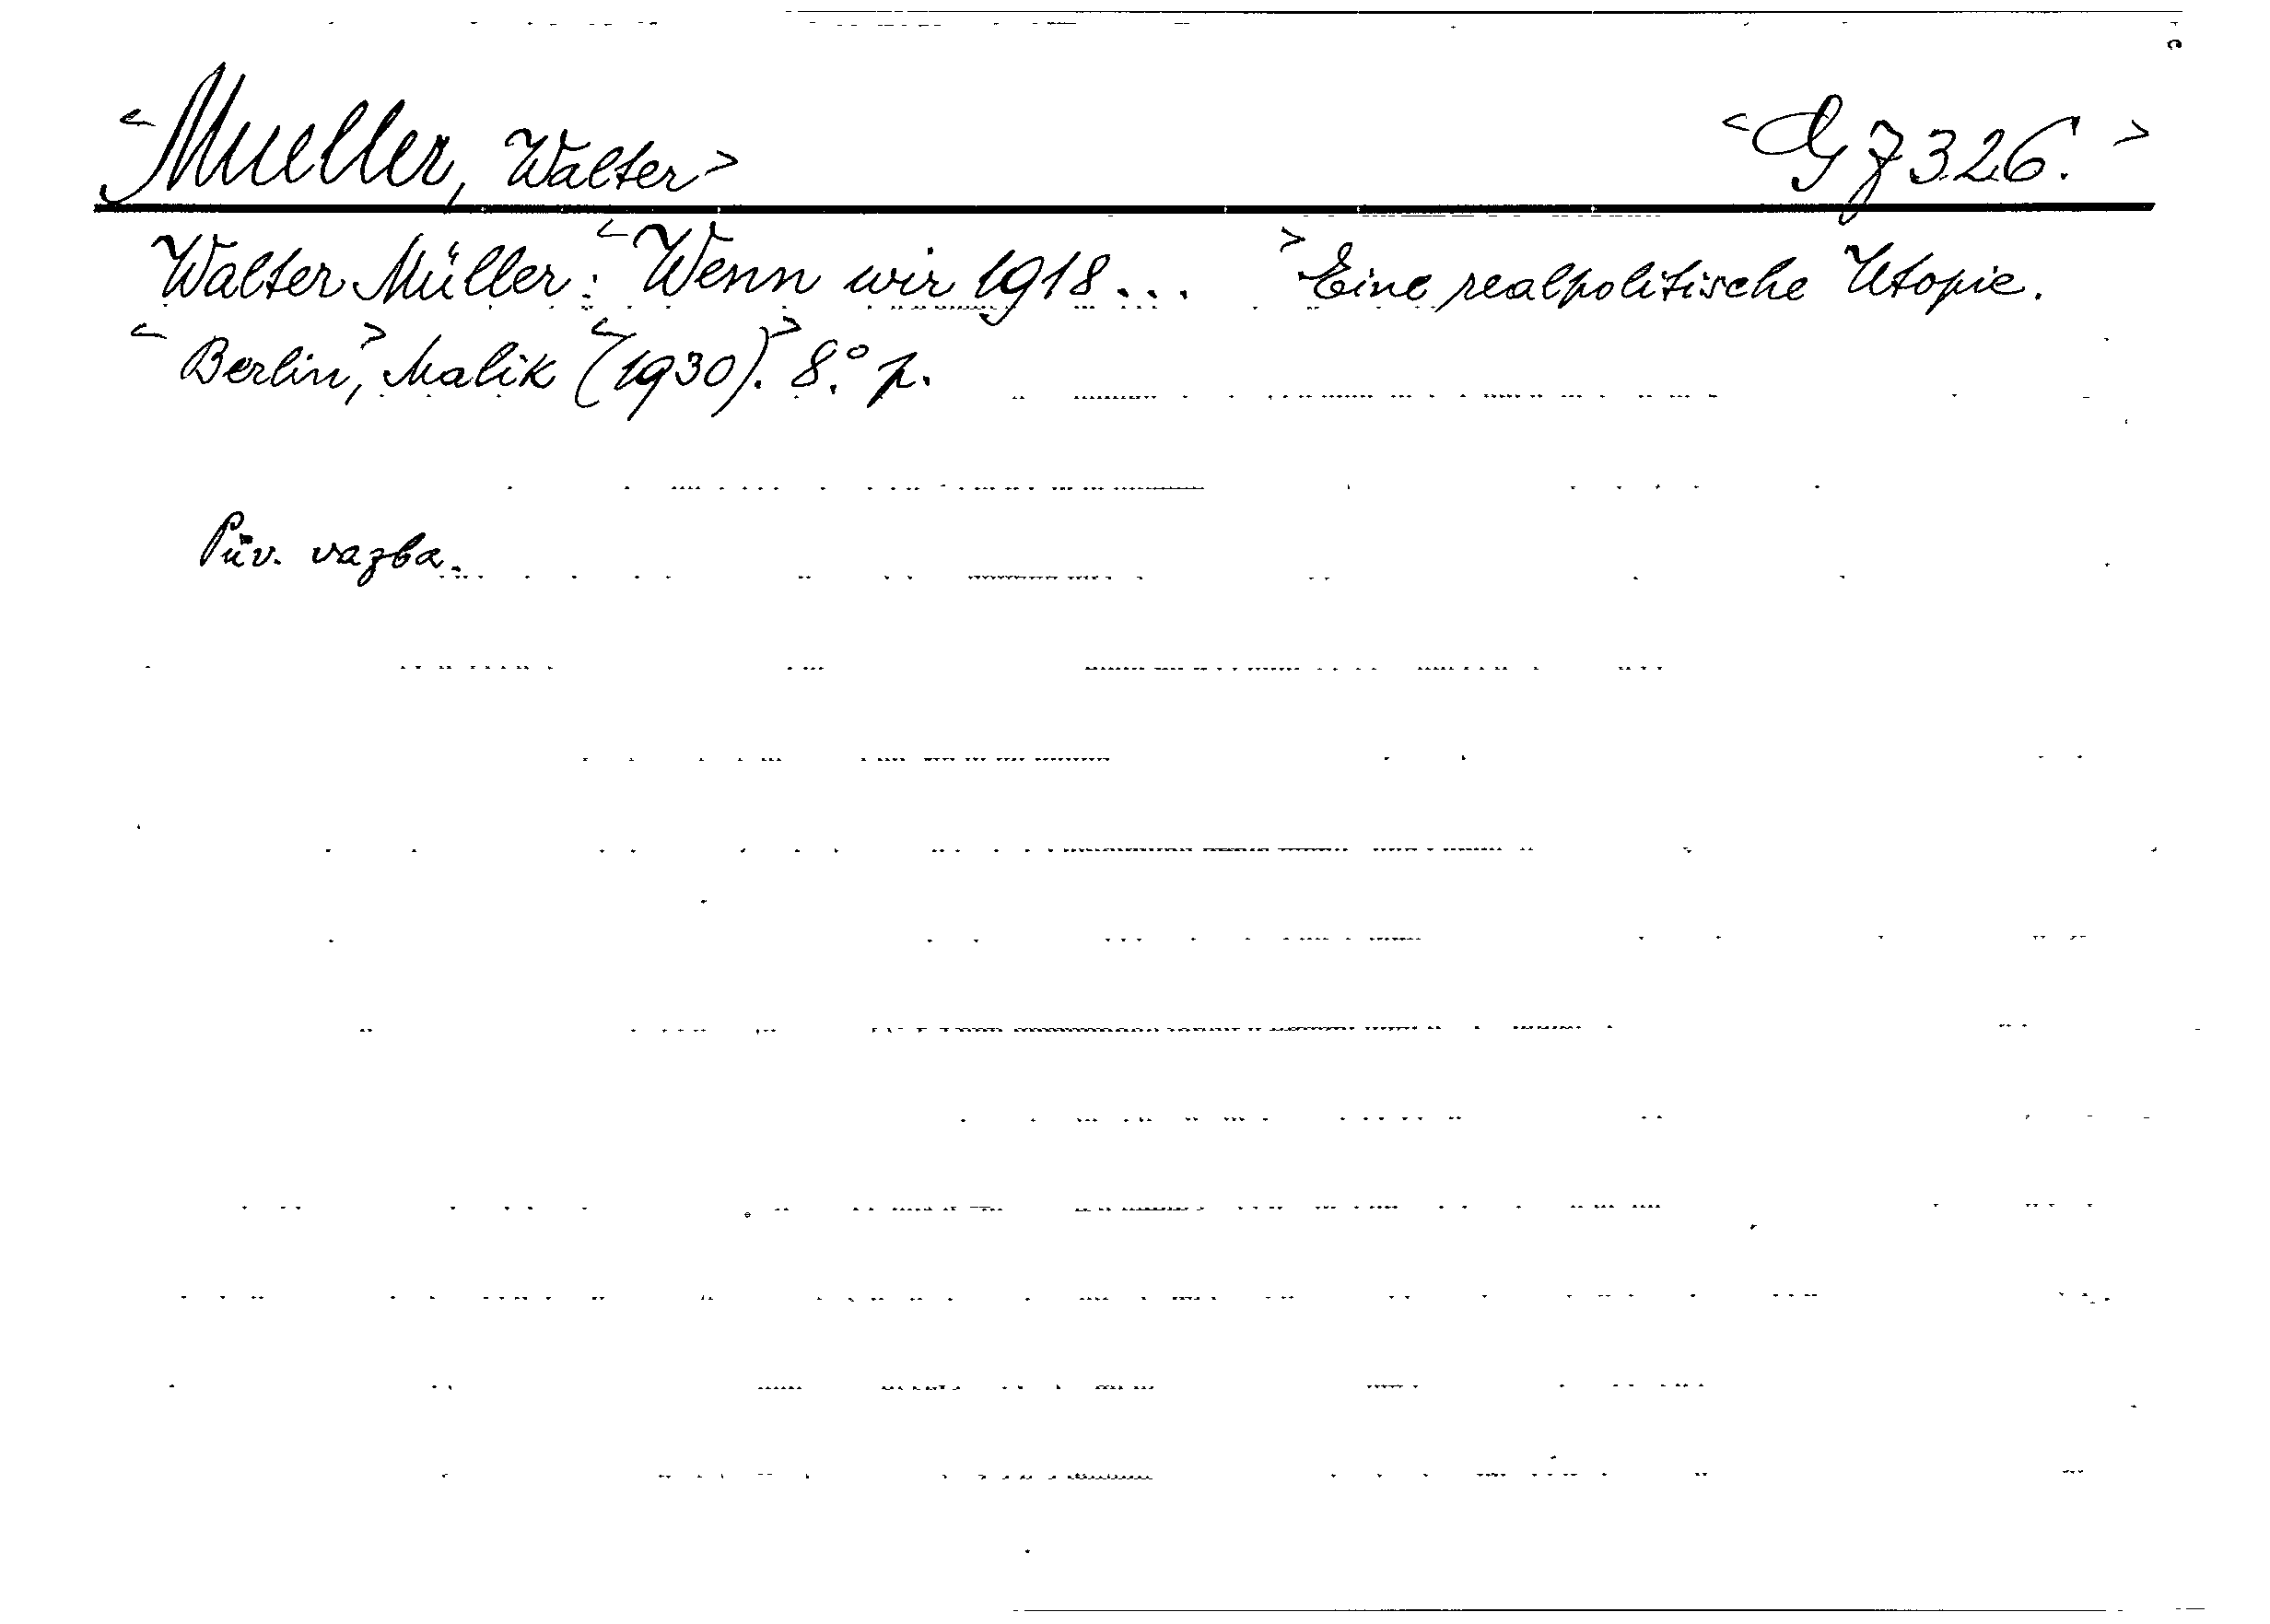 <Mueller, Walter> <G z 326.>
Walter Müller: <Wenn wir 1918... >Eine realpolitische Utopie.
<Berlin,> Malik <(1930).> 8.° p.
Pův. vazba.